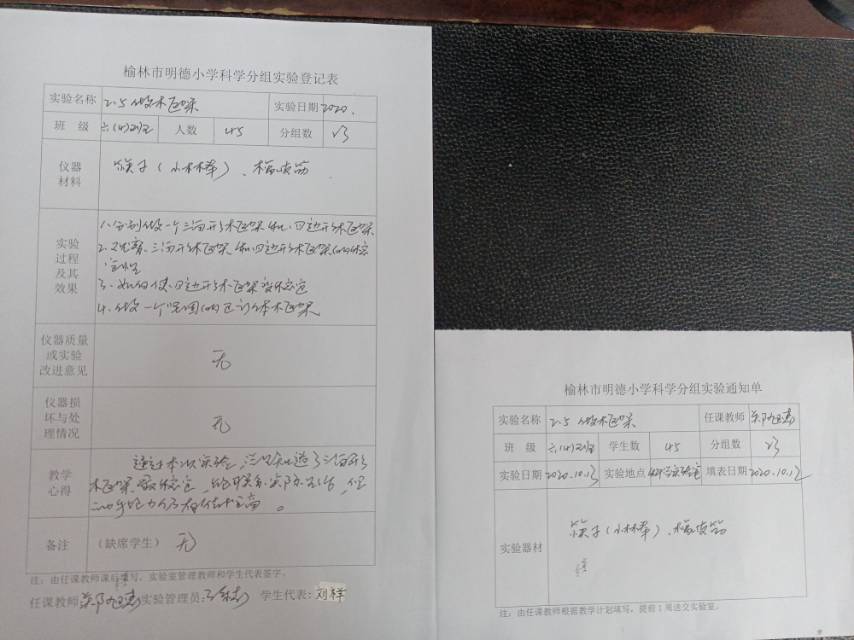 榆林市明德小学科学分组实验登记表
实验名称 2.5做框架 实验日期 2020.
班 级 六(4)班 人数 45 分组数
仪器材料 筷子(小木棒)、橡皮筋
实验过程及其效果
1.分别做一个三角形框架和四边形框架
2.比较三角形框架和四边形框架的稳定性
3.如何使四边形框架变稳定
4.做一个坚固的正方体框架
仪器质量或实验改进意见 无
仪器损坏与处理情况 无
教学心得
通过本次实验,
框架最稳定,能联系实际生活,但
动手能力仍有待提高。
备注 (缺席学生) 无
注:由任课教师课后填写,实验室管理教师和学生代表签字。
任课教师 实验管理员: 学生代表:刘祥
榆林市明德小学科学分组实验通知单
实验名称 2.5做框架 任课教师
班 级 六(4)班 学生数 45 分组数
实验日期 2020.10.13 实验地点 科学实验室 填表日期 2020.10.12
实验器材 筷子(小木棒)、橡皮筋
注:由任课教师根据教学计划填写,提前1周送交实验室。